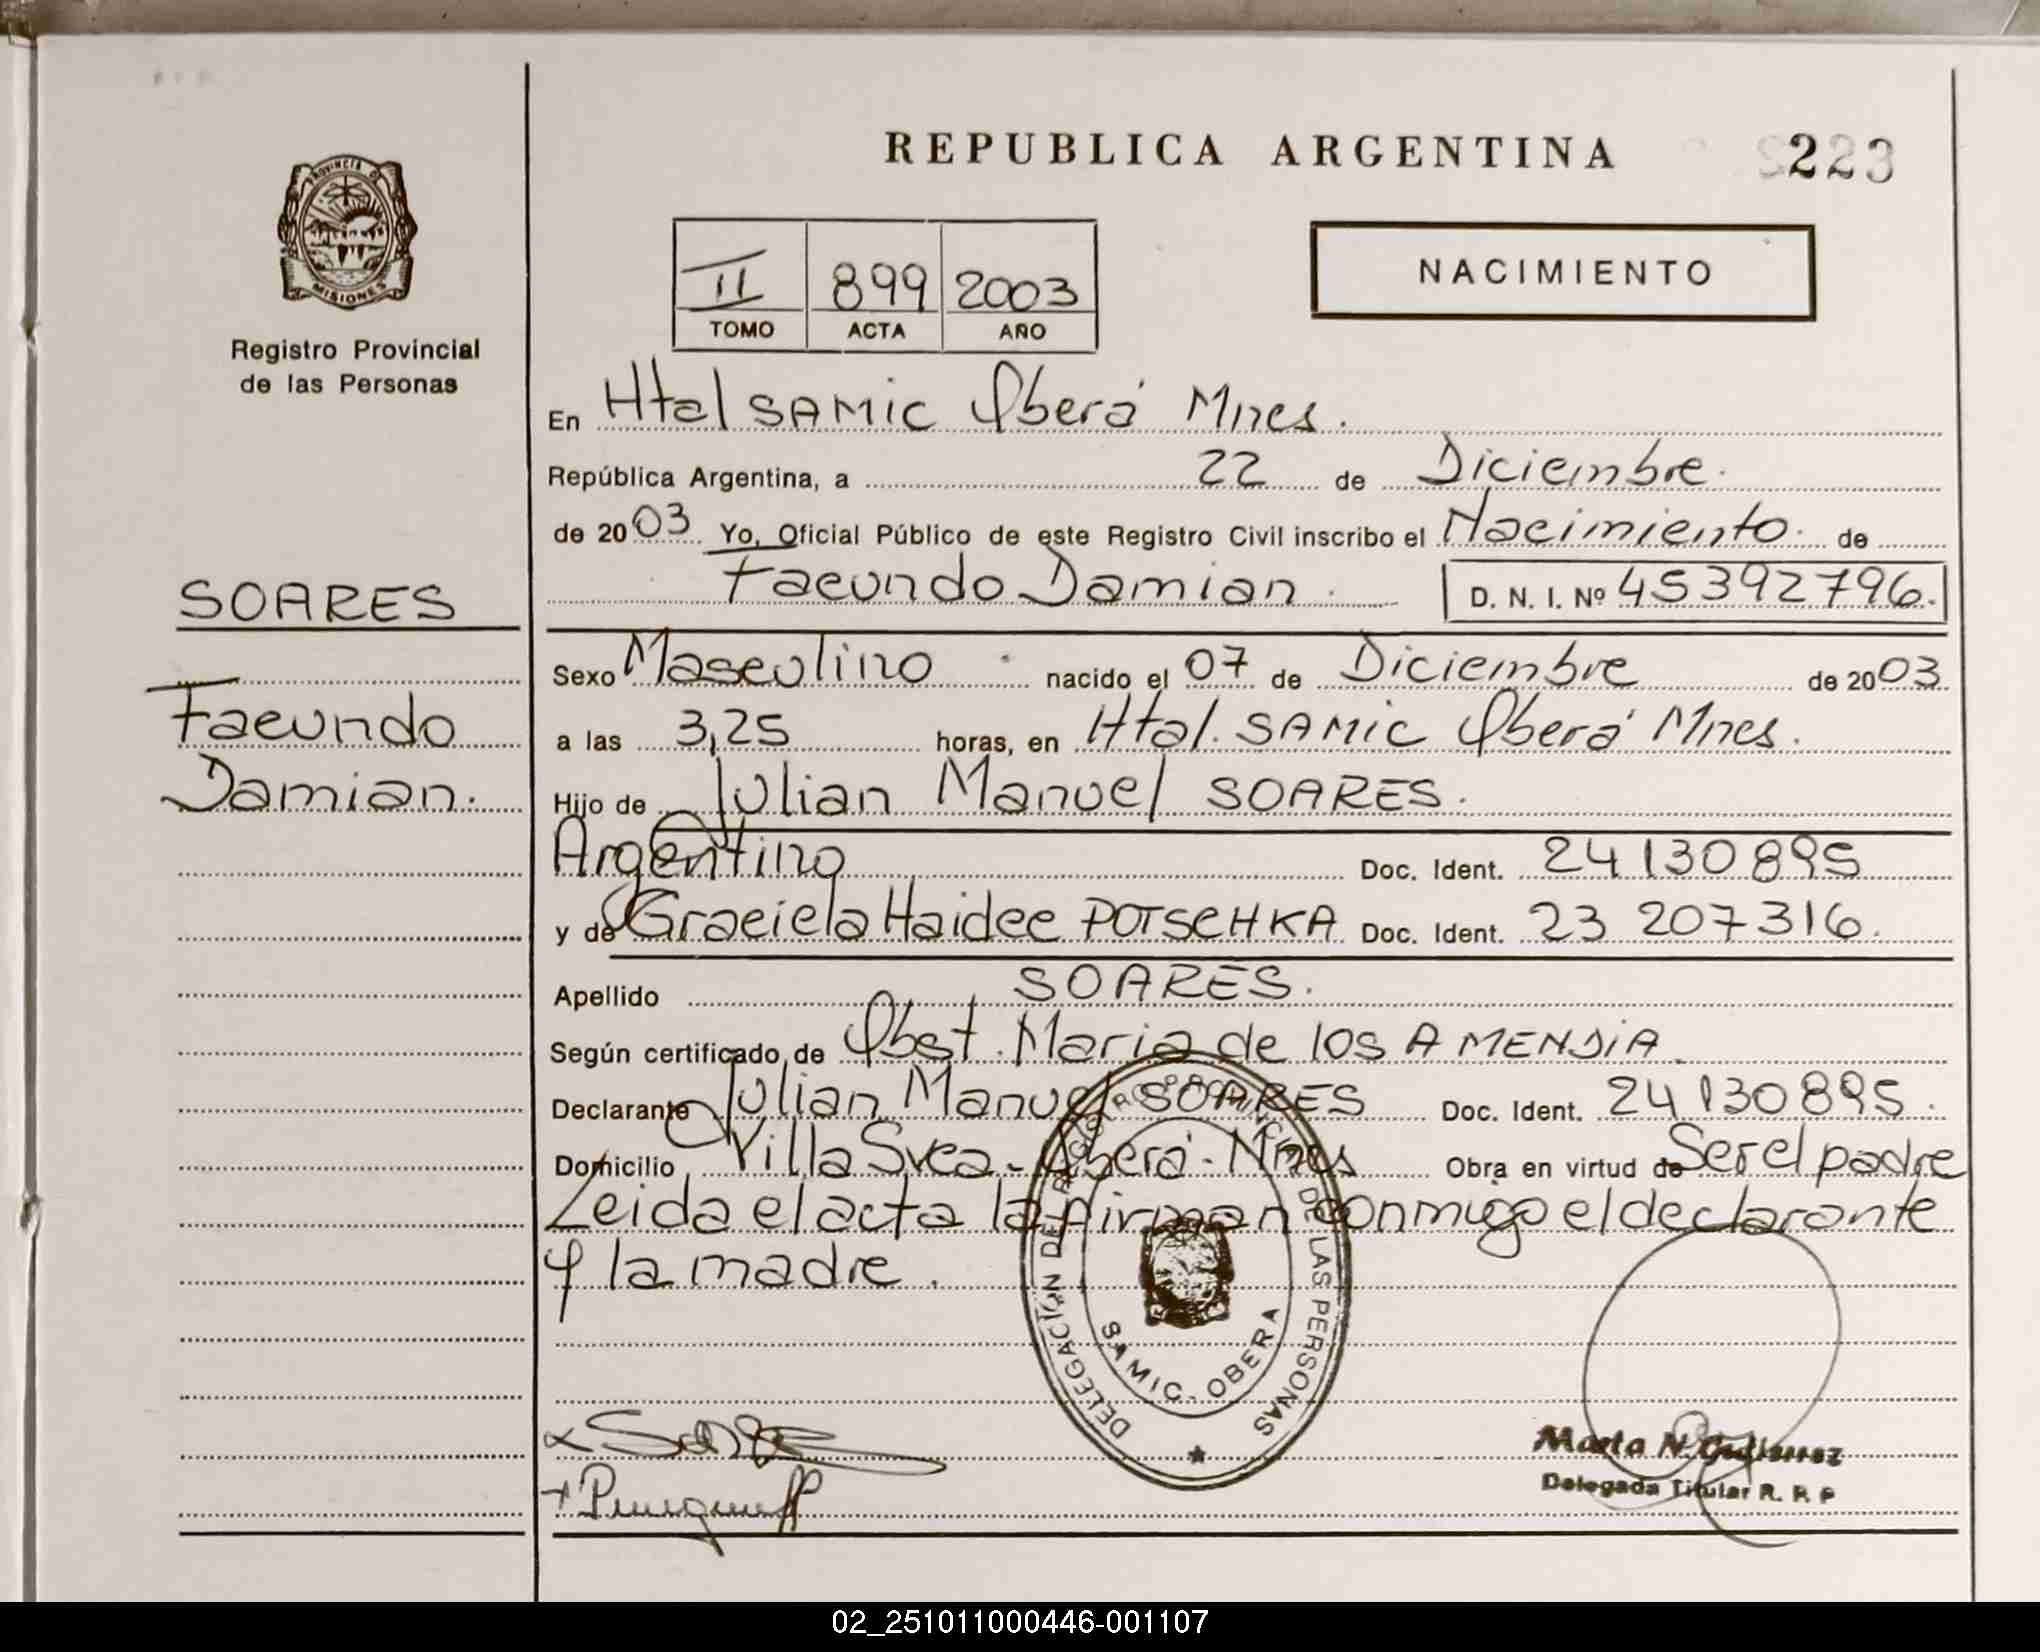 REPUBLICA ARGENTINA
223
PROVINCIA D
MISIONES
Registro Provincial
de las Personas
II 899 2003
TOMO ACTA AÑO
NACIMIENTO
En Htal SAMIC Oberá Mnes.
República Argentina, a 22 de Diciembre.
de 2003 Yo, Oficial Público de este Registro Civil inscribo el Nacimiento de
Facundo Damian. D. N. I. Nº 45392796.
SOARES
Facundo
Damian.
Sexo Masculino nacido el 07 de Diciembre de 2003
a las 3,25 horas, en Htal. SAMIC Oberá Mnes.
Hijo de Julian Manuel SOARES.
Argentino Doc. Ident. 24130895
y de Graciela Haidee POTSCHKA Doc. Ident. 23 207316.
Apellido SOARES.
Según certificado de Obst. Maria de los A MENDIA.
Declarante Julian Manuel SOARES Doc. Ident. 24130895.
Domicilio Villa Svea - Oberá - Mnes Obra en virtud de Ser el padre
Leida el acta la firman conmigo el declarante
y la madre.
DELEGACIÓN DEL REGISTRO PROVINCIAL DE LAS PERSONAS
SAMIC - OBERA
Marta N. Gutierrez
Delegada Titular R. P. P
02_251011000446-001107